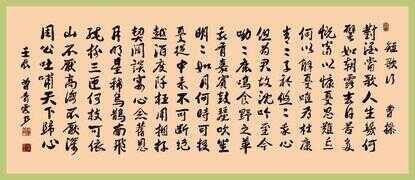 短歌行 曹操
對酒當歌人生幾何
譬如朝露去日苦多
慨當以慷憂思難忘
何以解憂唯有杜康
青青子衿悠悠我心
但為君故沈吟至今
呦呦鹿鳴食野之苹
我有嘉賓鼓瑟吹笙
明明如月何時可掇
憂從中來不可斷絕
越陌度阡枉用相存
契闊談宴心念舊恩
月明星稀烏鵲南飛
繞樹三匝何枝可依
山不厭高海不厭深
周公吐哺天下歸心
壬辰